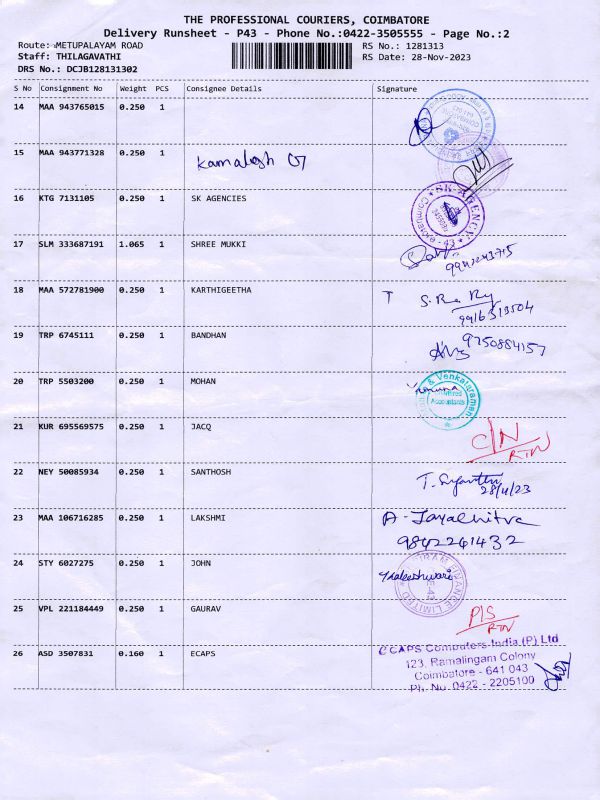 THE PROFESSIONAL COURIERS, COIMBATORE
Delivery Runsheet - P43 - Phone No.:0422-3505555 - Page No.:2
Route: METUPALAYAM ROAD RS No.: 1281313
Staff: THILAGAVATHI RS Date: 28-Nov-2023
DRS No.: DCJB128131302
S No Consignment No Weight PCS Consignee Details Signature
14 MAA 943765015 0.250 1
15 MAA 943771328 0.250 1 Kamalesh G
16 KTG 7131105 0.250 1 SK AGENCIES
SK AGENCY
Coimbatore - 43
17 SLM 333687191 1.065 1 SHREE MUKKI
18 MAA 572781900 0.250 1 KARTHIGEETHA
19 TRP 6745111 0.250 1 BANDHAN
9750884157
20 TRP 5503200 0.250 1 MOHAN
& Venkataraman
Accountants
21 KUR 695569575 0.250 1 JACQ C/N
RTN
22 NEY 50085934 0.250 1 SANTHOSH
28/11/23
23 MAA 106716285 0.250 1 LAKSHMI A - Jayachitra
9842241432
24 STY 6027275 0.250 1 JOHN
FINANCE LIMITED
25 VPL 221184449 0.250 1 GAURAV P/S
RTN
26 ASD 3507831 0.160 1 ECAPS
ECAPS Computers India (P) Ltd
123, Ramalingam Colony
Coimbatore - 641 043
Ph. No. 0422 - 2205100